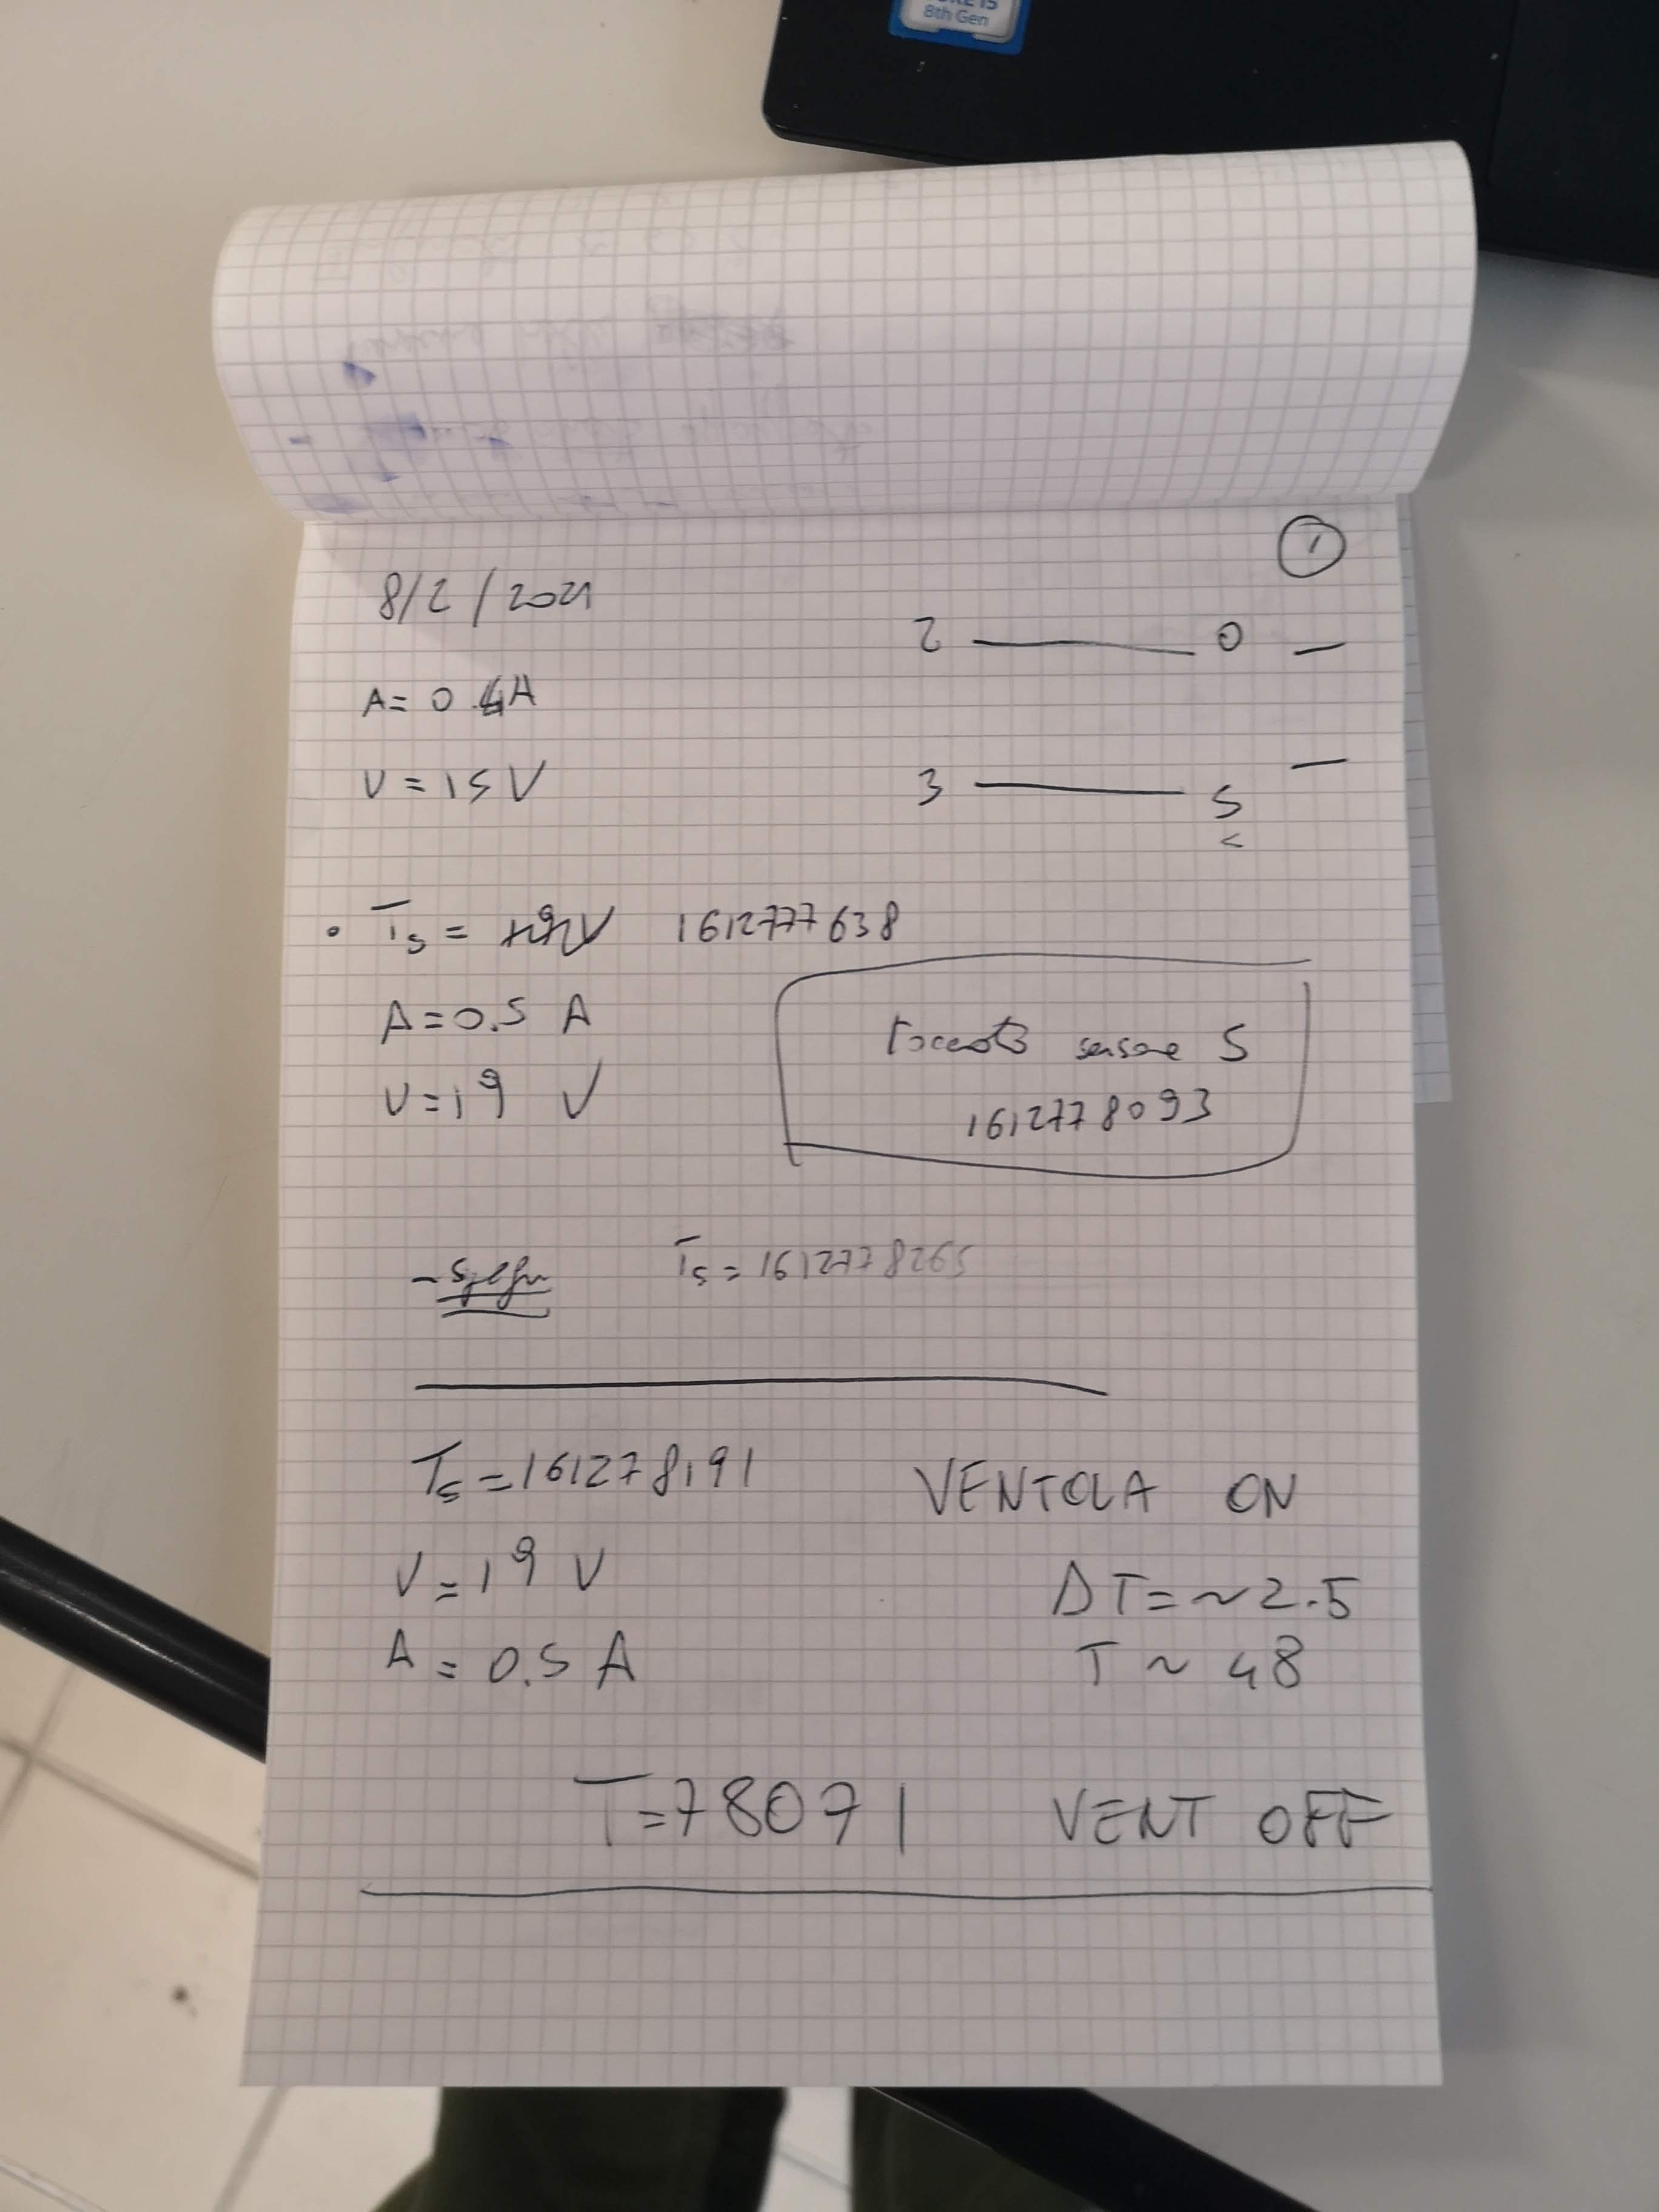 8th Gen
1
8/2/2021
2 — 0 —
A= 0.4A
V = 15 V
3 — 5 —
<
• Ts = 19V 1612777638
A=0.5 A
V=19 V
toccato sensore 5
1612778093
Ts = 1612778265
Ts = 161278191 VENTOLA ON
V = 19 V
ΔT= ~2.5
A = 0.5 A
T ~ 48
T=78071 VENT OFF